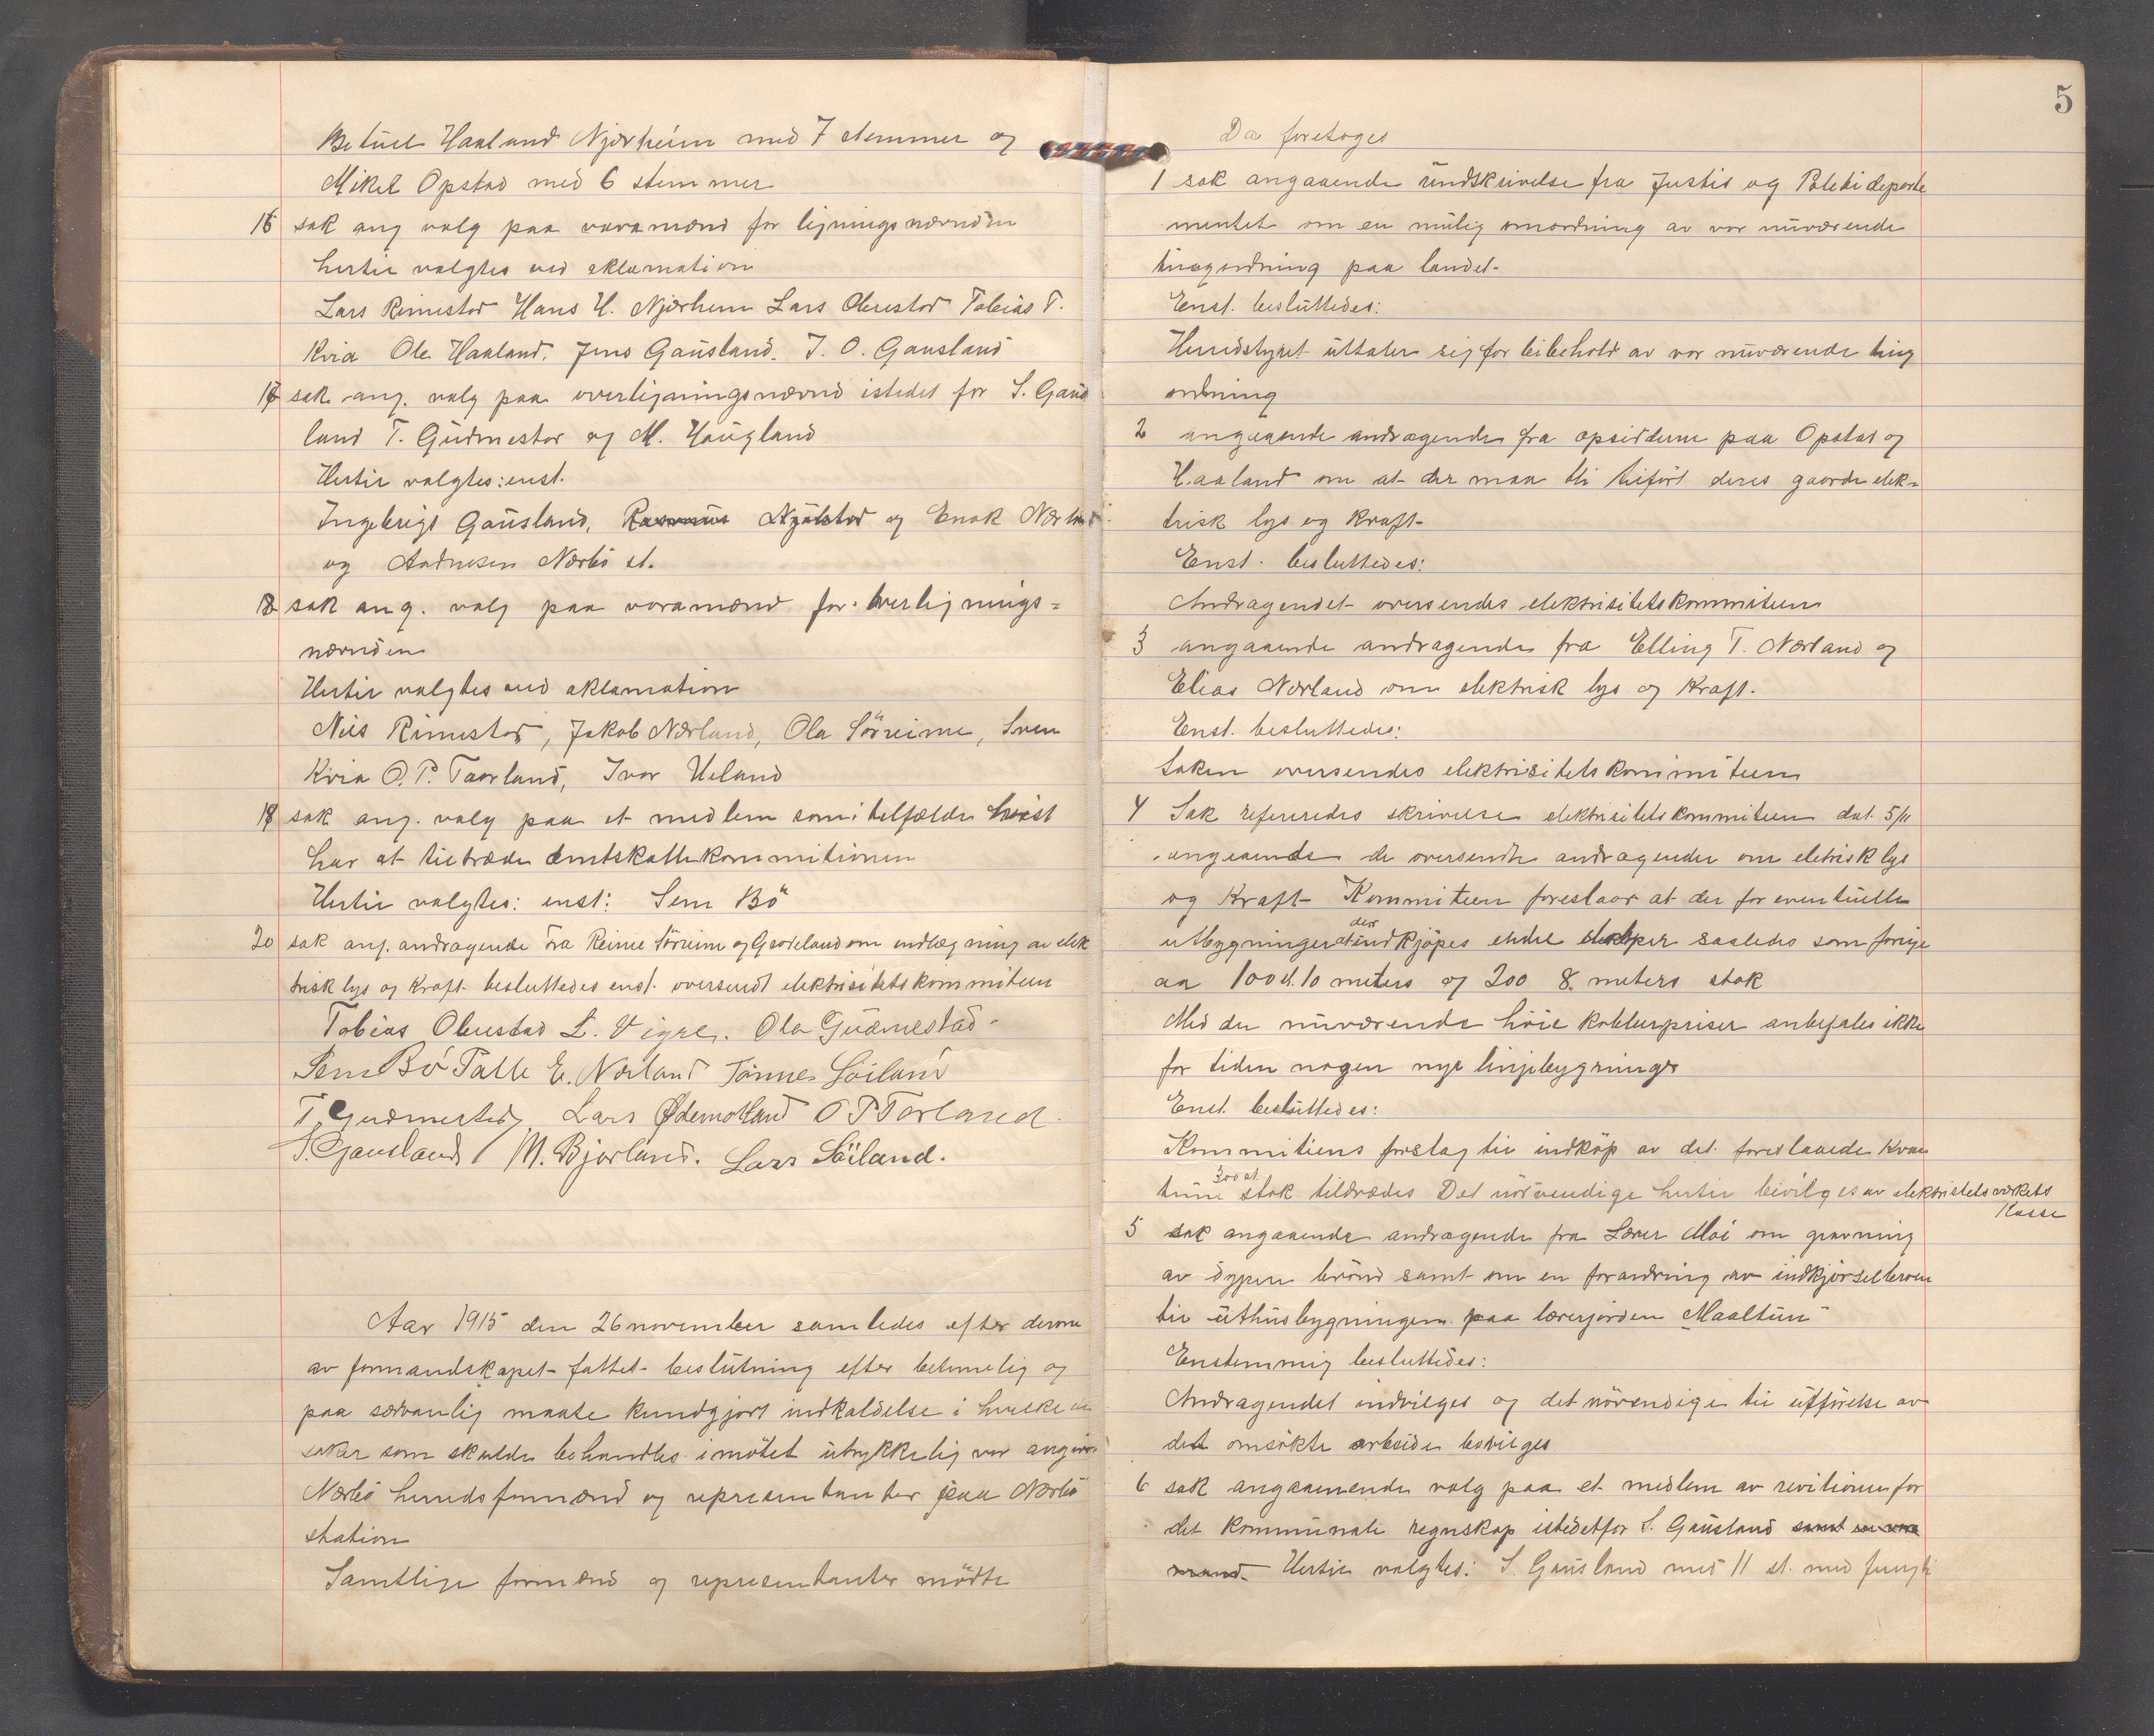 Betuel Haaland Njærheim med 7 stemmer og
Mikel Opstad med 6 stemmer
16 sak ang valg paa varamænd for ligningsnævnden
hertil valgtes ved aklamation
Lars Rimestad Hans H. Njærheim Lars Obrestad Tobias T.
Kvia Ole Haaland. Jens Gausland. T. O. Gausland
17 sak ang. valg paa overligningsnævnd istedet for S. Gaus
land T. Gudmestad og M. Haugland
Hertil valgtes: enst.
Ingebrigt Gausland, Rasmus Njølstad og Enok Nærland
og Andresen Nærbö st.
18 sak ang. valg paa varamænd for overlignings=
nævnden
Hertil valgtes ved aklamation
Nils Rimestad, Jakob Nærland, Ola Sörreime, Sven
Kvia O. P. Taarland, Ivar Ueland
19 sak ang. valg paa et medlem som i tilfælde
har at tiltræde amtskattekommitionen
Hertil valgtes: enst: Sem Bö
20 sak ang. andragende fra Reime Sörreime og Grødeland om indlægning av elek
trisk lys og kraft besluttedes enst. oversendt elektrisitetskommiteen
Tobias Obrestad L. Vigre. Ola Gudmestad.
Sem Bö Talle E. Nærland Tönnes Söiland
T. Gudmestad Lars Ødemotland O P Torland.
S. Gausland M. Bjorland. Lars Söiland.
Aar 1915 den 26 november samledes efter derom
av formandskapet fattet beslutning efter betimelig og
paa sedvanlig maate kundgjort indkaldelse i hvilke de
saker som skulde behandles i mötet utrykkelig var angivne
Nærbö herredsformænd og representanter paa Nærbö
station
Samtlige formænd og representanter mödte
5
Da foretoges
1 sak angaaende rundskrivelse fra Justis og Politideparte
mentet om en mulig omordning av vor nuværende
tingordning paa landet.
Enst. besluttedes:
Herredstyret uttaler sig for bibehold av vor nuværende ting
ordning
2 angaaende andragende fra opsidderne paa Opstad og
Haaland om at der maa bli tilfört deres gaarde elek=
trisk lys og kraft
Enst. besluttedes:
Andragendet oversendes elektrisitetskommiteen
3 angaaende andragende fra Elling T. Nærland og
Elias Nærland om elektrisk lys og kraft.
Enst. besluttedes:
Saken oversendes elektrisitetskommiteen
4 Sak refereredes skrivelse elektrisitetskommiteen dat. 5/11
angaaende de oversendte andragender om eletrisk lys
og kraft Kommiteen foreslaar at der for eventuelle
utbygninger at der indkjöpes endel stolper saaledes som forrige
aa 100 st. 10 meters og 200 8 meters stok
Med de nuværende höie kobberpriser anbefales ikke
for tiden nogen nye linjebygninger
Enst. besluttedes:
Kommiteens forslag til indköp av det foreslaaede kvan
tum 300 st. stok tiltrædes Det nödvendige hertil bevilges av elektrisitetsværkets
kasse
5 sak angaaende andragende fra Lærer Moi om gravning
av dypere brönd samt om en forandring av indkjörselbroen
til uthusbygningen paa lærerjorden Maaltun
Enstemmig besluttedes:
Andragendet indvilges og det növendige til utförelse av
det omsökte arbeide bevilges
6 sak angaaenende valg paa et medlem av revitionen for
det kommunale regnskap istedetfor S. Gausland samt en vara
mand. Hertil valgtes: S. Gausland med 11 st. med